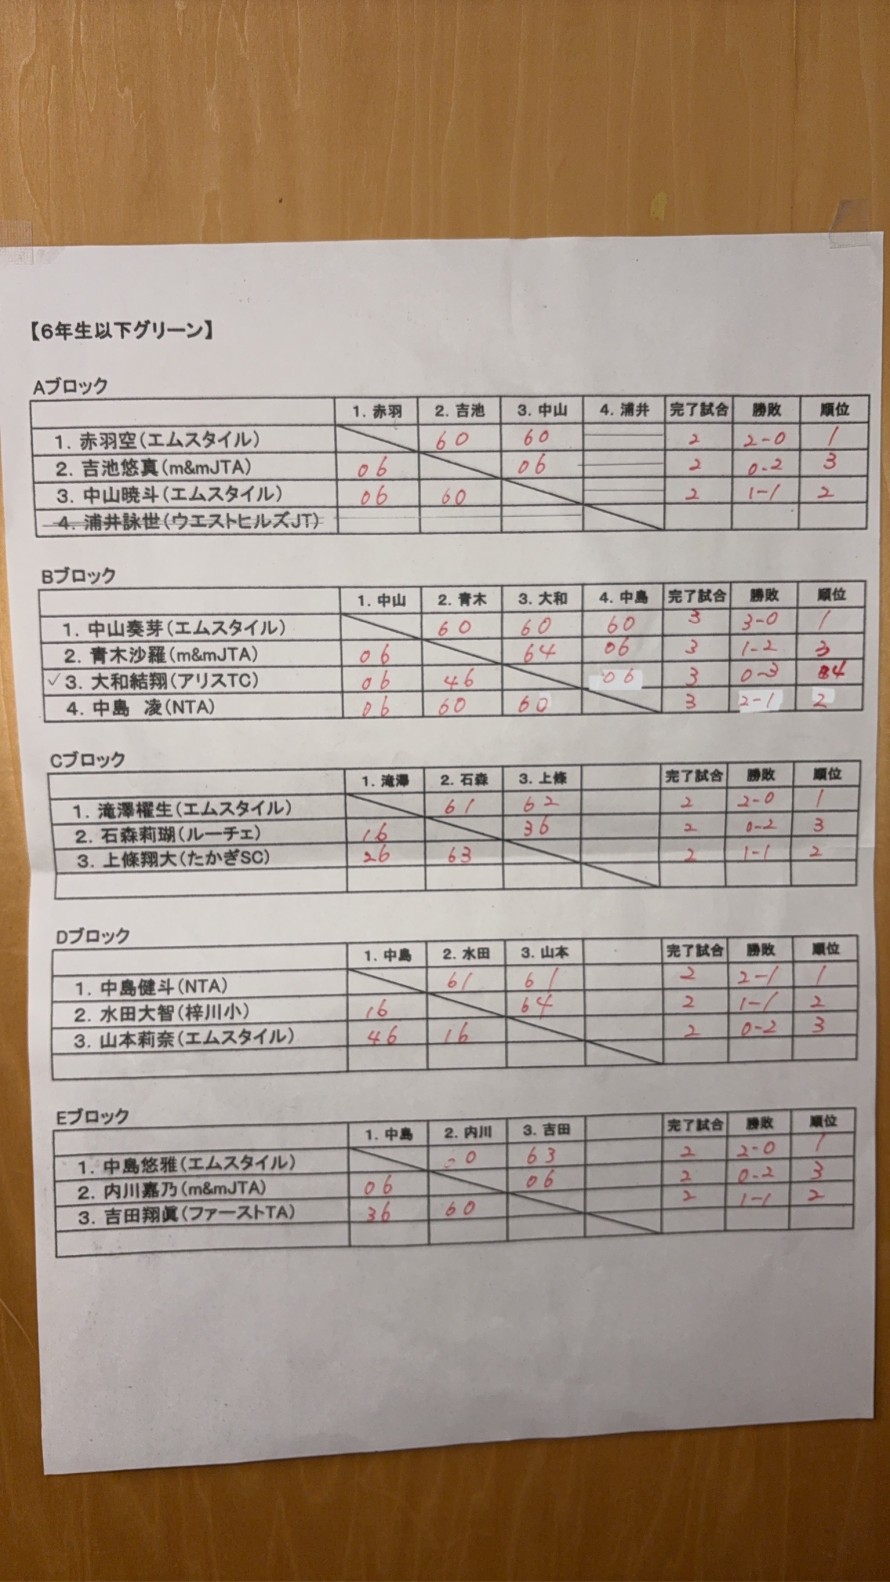 【6年生以下グリーン】
Aブロック
1. 赤羽 2. 吉池 3. 中山 4. 浦井 完了試合 勝敗 順位
1. 赤羽空(エムスタイル) 60 60 2 2-0 1
2. 吉池悠真(m&mJTA) 06 06 2 0-2 3
3. 中山暁斗(エムスタイル) 06 60 2 1-1 2
4. 浦井詠世(ウエストヒルズJT)
Bブロック
1. 中山 2. 青木 3. 大和 4. 中島 完了試合 勝敗 順位
1. 中山奏芽(エムスタイル) 60 60 60 3 3-0 1
2. 青木沙羅(m&mJTA) 06 64 06 3 1-2 3
✓3. 大和結翔(アリスTC) 06 46 06 3 0-3 4
4. 中島 凌(NTA) 06 60 60 3 2-1 2
Cブロック
1. 滝澤 2. 石森 3. 上條 完了試合 勝敗 順位
1. 滝澤櫂生(エムスタイル) 61 62 2 2-0 1
2. 石森莉瑚(ルーチェ) 16 36 2 0-2 3
3. 上條翔大(たかぎSC) 26 63 2 1-1 2
Dブロック
1. 中島 2. 水田 3. 山本 完了試合 勝敗 順位
1. 中島健斗(NTA) 61 61 2 2-1 1
2. 水田大智(梓川小) 16 64 2 1-1 2
3. 山本莉奈(エムスタイル) 46 16 2 0-2 3
Eブロック
1. 中島 2. 内川 3. 吉田 完了試合 勝敗 順位
1. 中島悠雅(エムスタイル) 0 63 2 2-0 1
2. 内川嘉乃(m&mJTA) 06 06 2 0-2 3
3. 吉田翔眞(ファーストTA) 36 60 2 1-1 2